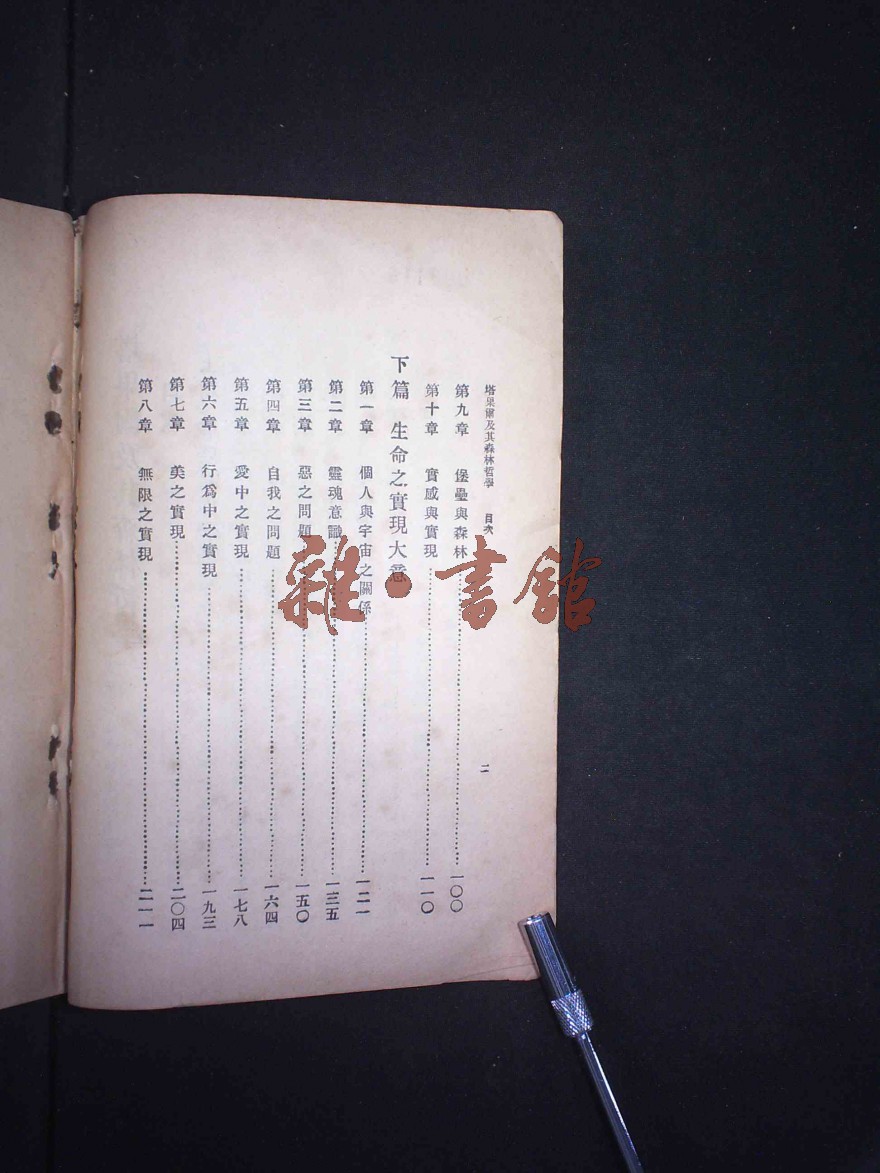 塔果爾及其森林哲學　目次　二
第九章　堡壘與森林……一〇〇
第十章　實感與實現……一一〇
下篇　生命之實現大意
第一章　個人與宇宙之關係……一二一
第二章　靈魂意識……一三五
第三章　惡之問題……一五〇
第四章　自我之問題……一六四
第五章　愛中之實現……一七八
第六章　行爲中之實現……一九三
第七章　美之實現……二〇四
第八章　無限之實現……二一一
雜·書館